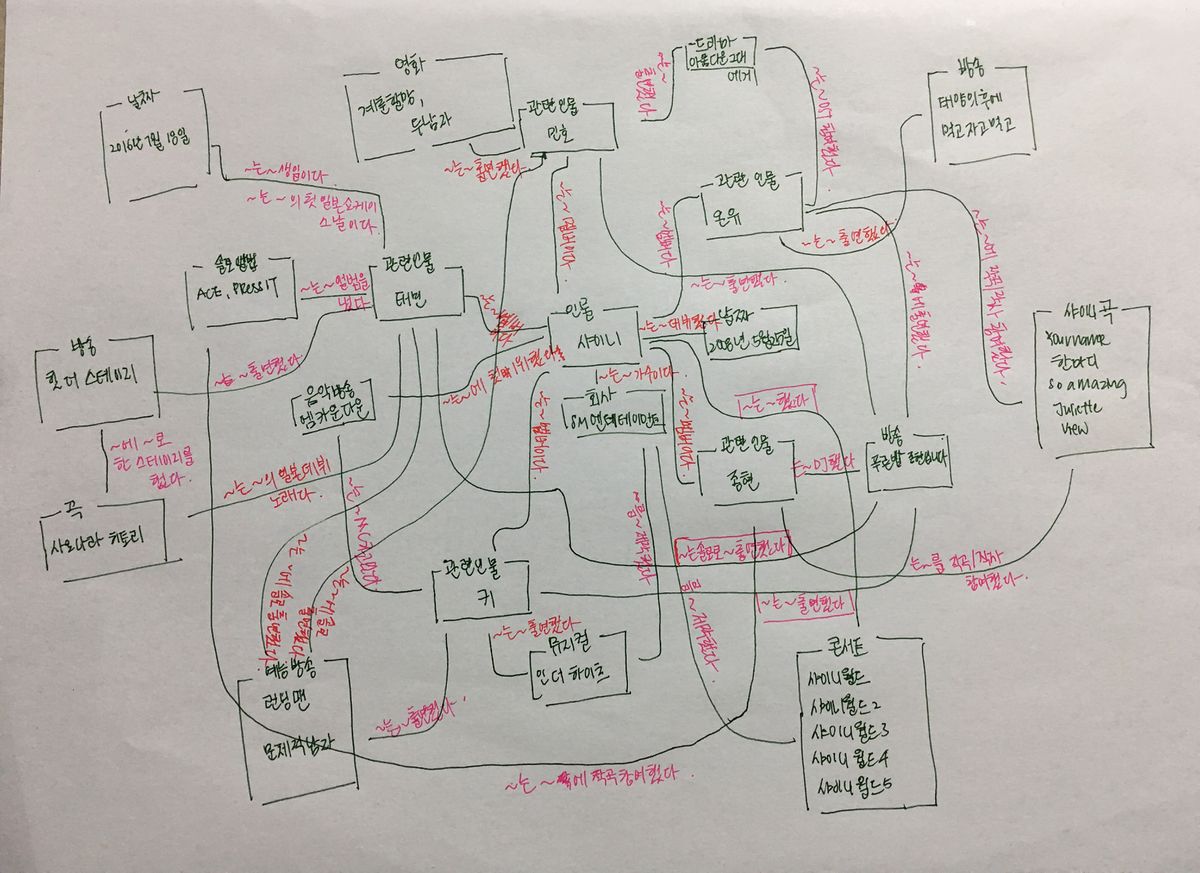 드라마
아름다운그대
에게
영화
계춘할망,
두남자
관련인물
민호
방송
태양의후예
먹고자고먹고
날짜
2016년 7월 18일
~는~출연했다
~는~OST 참여했다.
~는~출연했다.
~는~생일이다.
~는~의 첫 일본쇼케이
스날이다.
관련 인물
온유
~는~멤버이다.
~는~멤버이다.
~는~출연했다.
솔로앨범
ACE, PRESS IT
~는~앨범을
냈다.
관련인물
태민
~는~출연했다.
인물
샤이니
~는~데뷔했다
날짜
2008년 5월25일
~는~에 출연했다.
~는~에 작곡/작사 참여했다.
샤이니 곡
your name
한마디
so amazing
Juliette
view
방송
힛 더 스테이지
~는~출연했다.
음악방송
엠카운다운
~는~가수이다.
회사
SM엔터테이먼트
~는~멤버이다.
~는~멤버이다.
~는~했다.
관련인물
종현
~는~DJ했다
방송
푸른밤 종현입니다
~에~로
한 스테이지를
했다.
곡
사요나라 히토리
~는~의 일본데뷔
노래다.
~는~MC자리였다
~는솔로로~출연했다
~는~를 작곡/작사
참여했다.
관련인물
키
~는~출연했다
~는~제작했다.
~는~출연했다
뮤지컬
인더하이츠
예능방송
런닝맨
문제적남자
~는~출연했다.
콘서트
샤이니월드
샤이니월드2
샤이니월드3
샤이니월드4
샤이니월드5
~는~에 작곡참여했다.